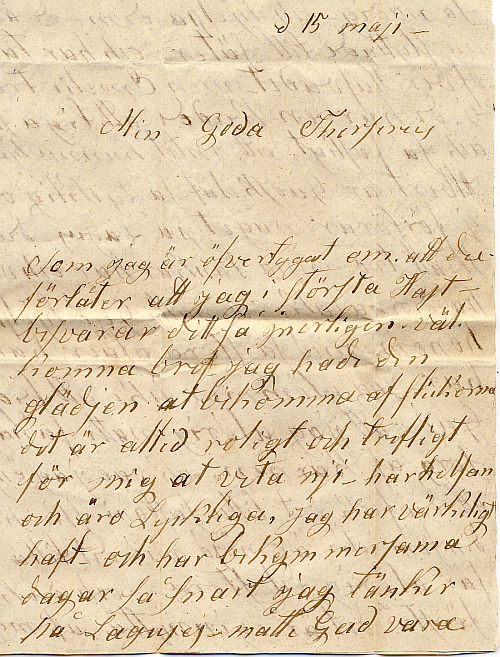 d 15 maji -
Min Goda
Som jag är öfvertygat om. att du
förlåter att jag i största Hast
besvarar ditt så inerligen. väl
komna bref jag hade den
glädjen at bekomma af flickorna
det är altid roligt och trefligt
för mig at veta nji har helsan
och äro Lyckliga, jag har värkeligt
haft och har bekymmersama
dagar så snart jag tänker
på matte Gud vara